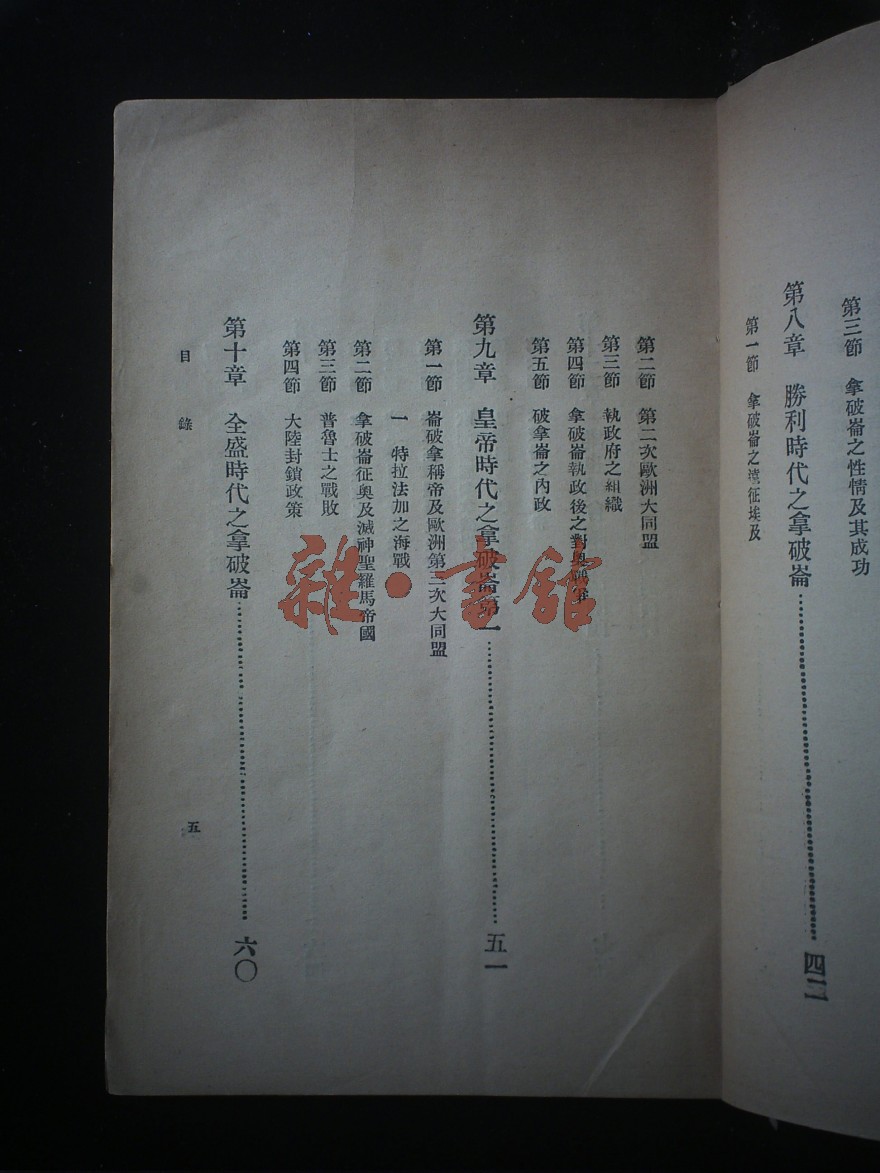 第三節　拿破崙之性情及其成功
第八章　勝利時代之拿破崙
第一節　拿破崙之遠征埃及
第二節　第二次歐洲大同盟
第三節　執政府之組織
第四節　拿破崙執政後之對奧
第五節　破拿崙之內政
第九章　皇帝時代之拿破崙第一
五一
第一節　崙破拿稱帝及歐洲第三次大同盟
一　特拉法加之海戰
第二節　拿破崙征奧及滅神聖羅馬帝國
第三節　普魯士之戰敗
第四節　大陸封鎖政策
第十章　全盛時代之拿破崙
六〇
目錄
五
雜·書館